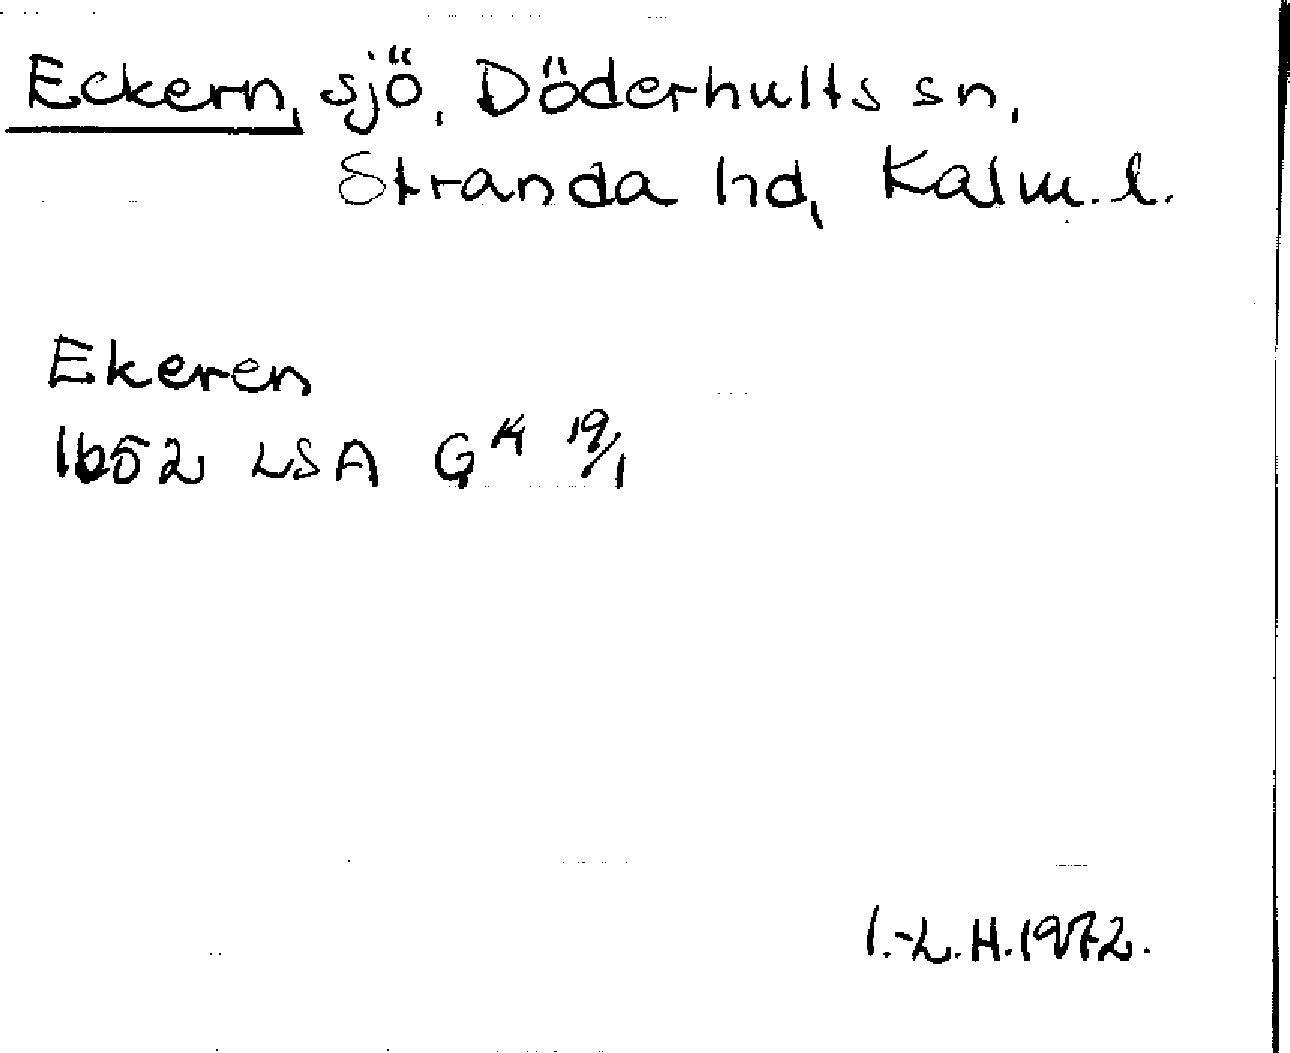 Eckern, sjö, Döderhults sn,
Stranda hd, Kalm. l.
Ekeren
1652 LSA G 14 19/1
I.-L.H.1972.